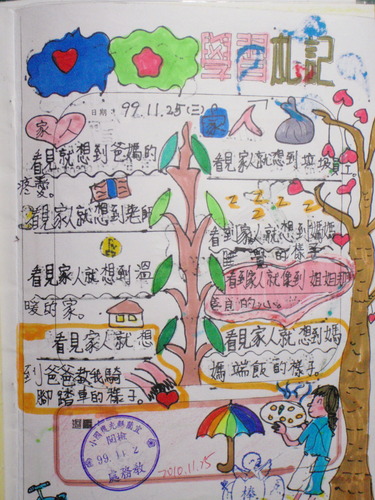 學習札記
日期:99.11.25(三)
家
家人
看見就想到爸媽的
疼愛。
看見家人就想到老師
看見家人就想到溫
暖的家。
看見家人就想
到爸爸教我騎
腳踏車的樣子。
看見家人就想到垃圾員工。
看到家人就想到媽媽
睡覺的樣子
看到家人就像到姐姐
看見家人就想到媽
媽端飯的樣子。
99.11.2
2010.11.25